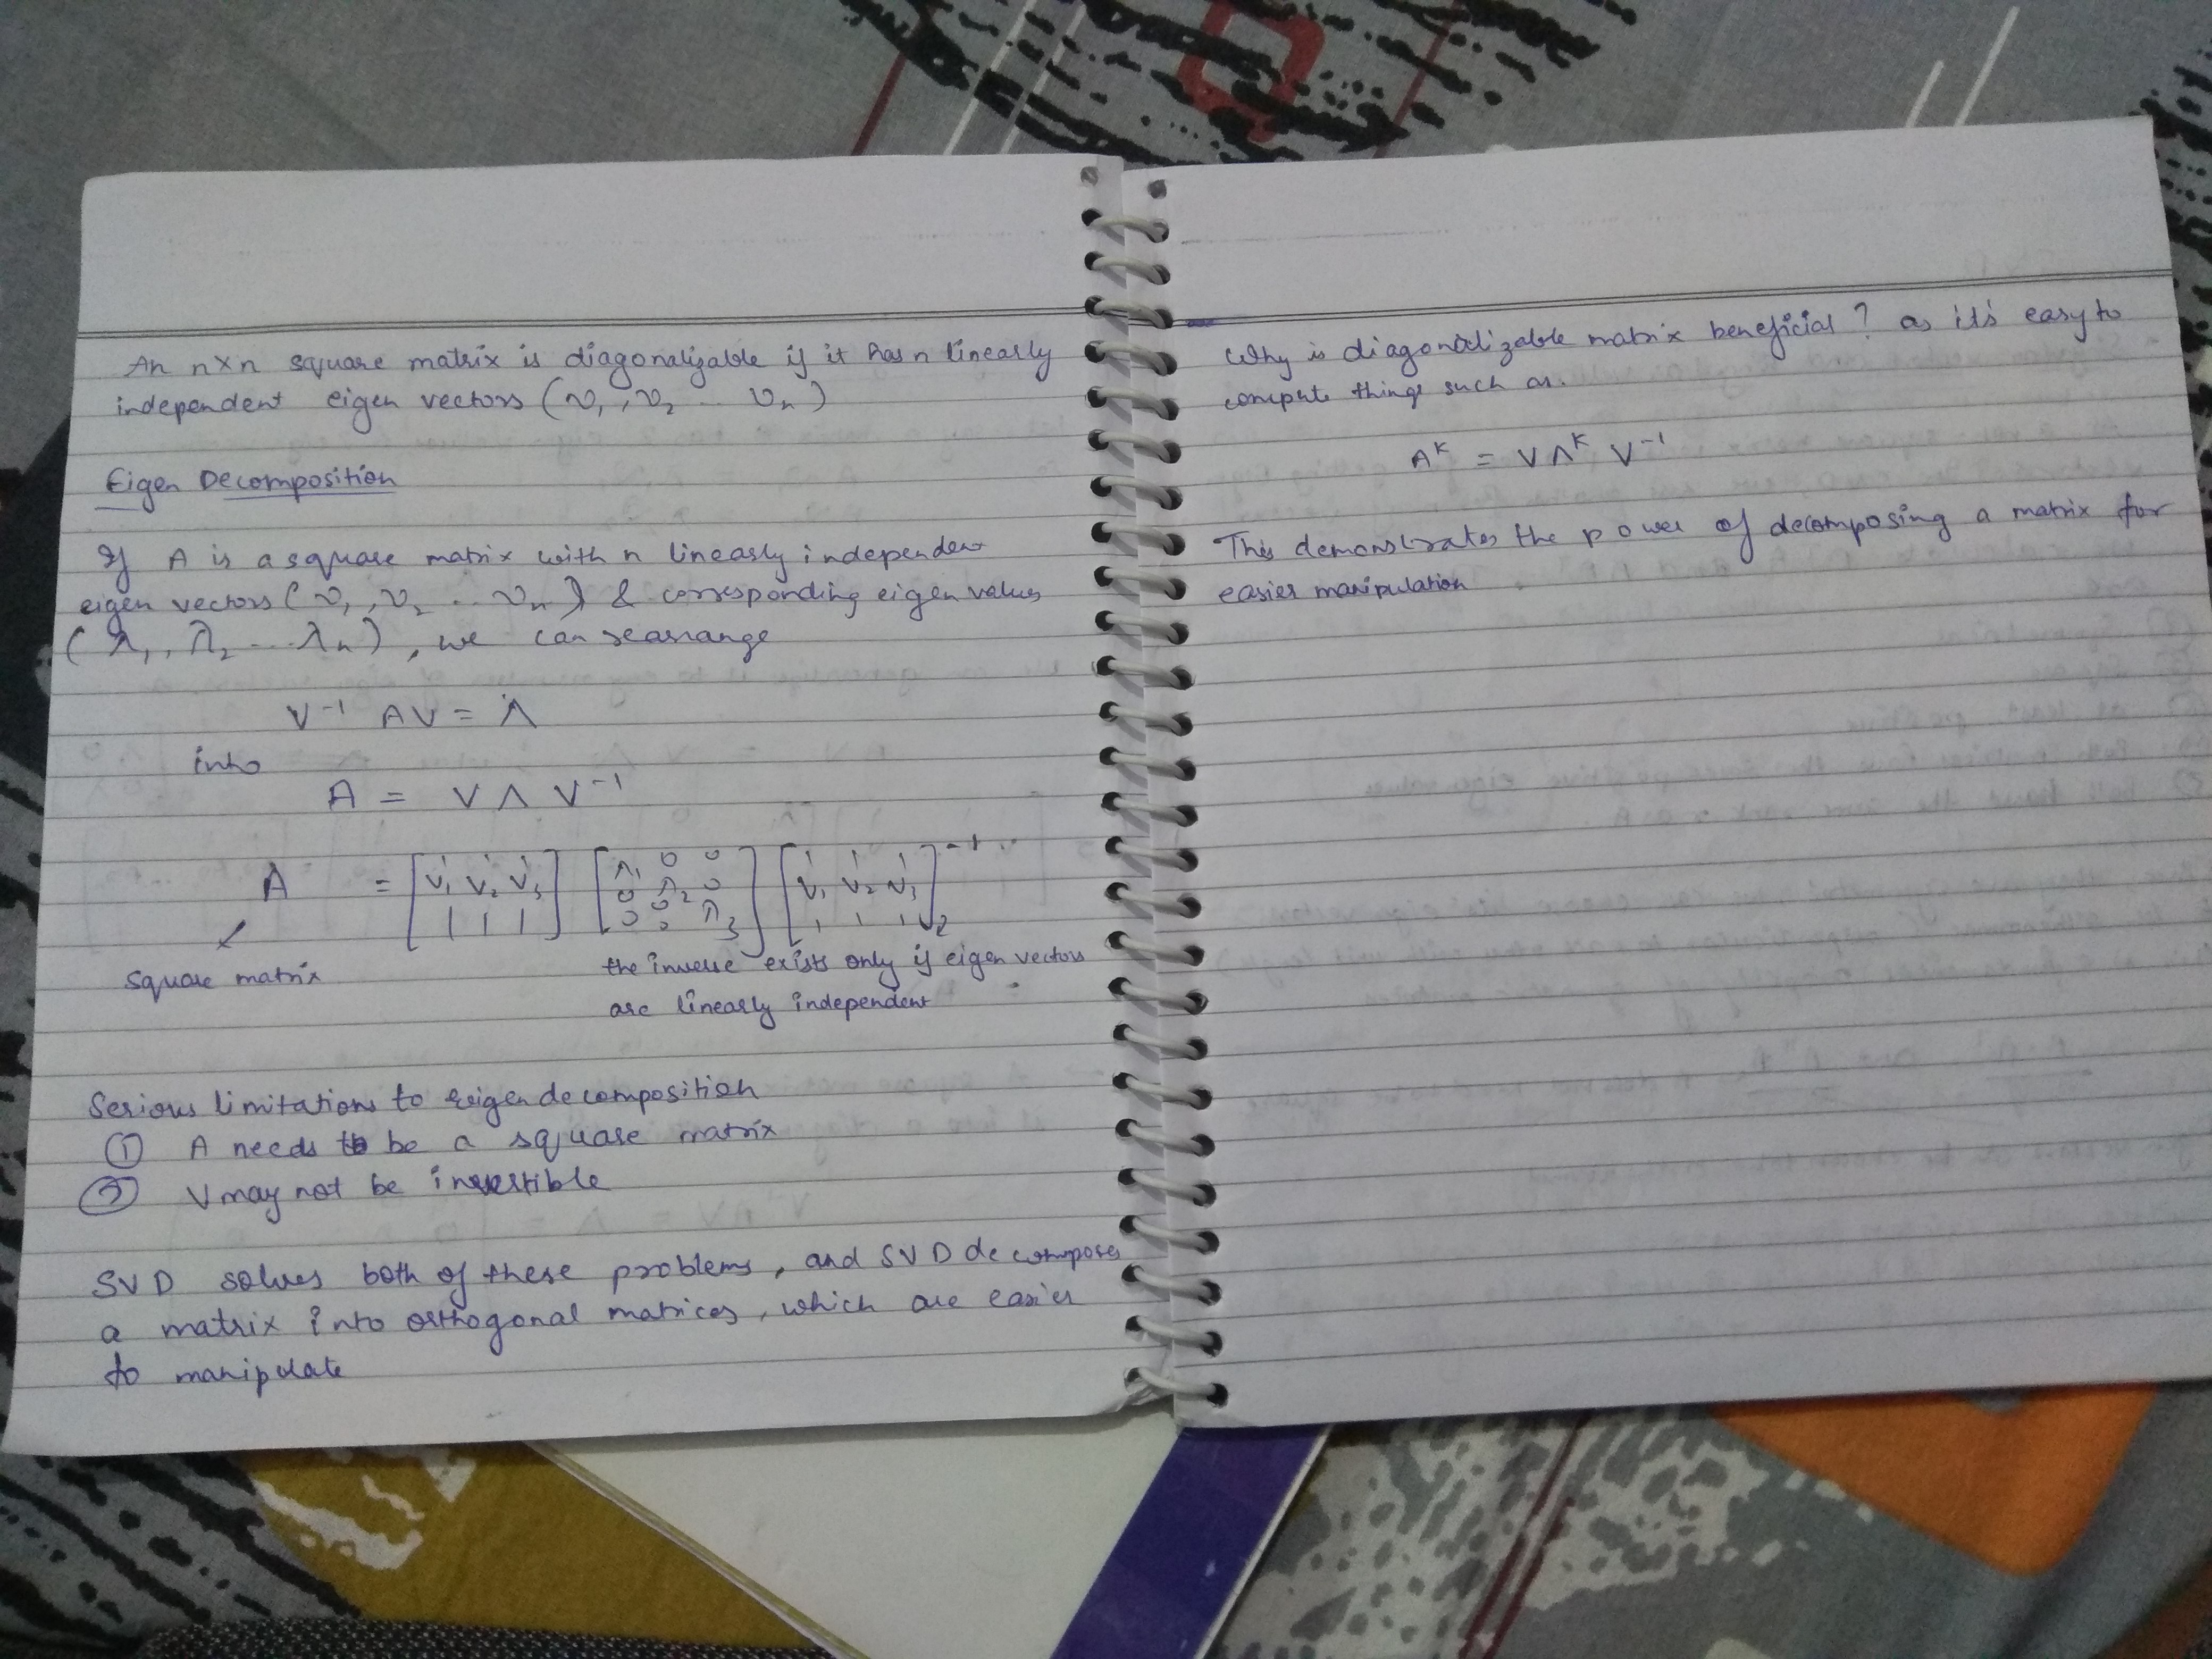 An n×n square matrix is diagonalizable if it has n linearly
independent eigen vectors (v₁, v₂ .. vₙ)
Eigen Decomposition
If A is a square matrix with n linearly independent
eigen vectors (v₁, v₂ .. vₙ) & corresponding eigen values
(λ₁, λ₂ ... λₙ), we can rearrange
V⁻¹ AV = Λ
into
A = V Λ V⁻¹
A = [v₁ v₂ v₃] [λ₁ 0 0 0 λ₂ 0 0 0 λ₃] [v₁ v₂ v₃]⁻¹
square matrix
the inverse exists only if eigen vectors
are linearly independent
Serious limitations to eigen decomposition
① A needs to be a square matrix
② V may not be invertible
SVD solves both of these problems, and SVD decomposes
a matrix into orthogonal matrices, which are easier
to manipulate
Why is diagonalizable matrix beneficial? as it's easy to
compute things such as.
Aᴷ = V Λᴷ V⁻¹
This demonstrates the power of decomposing a matrix for
easier manipulation